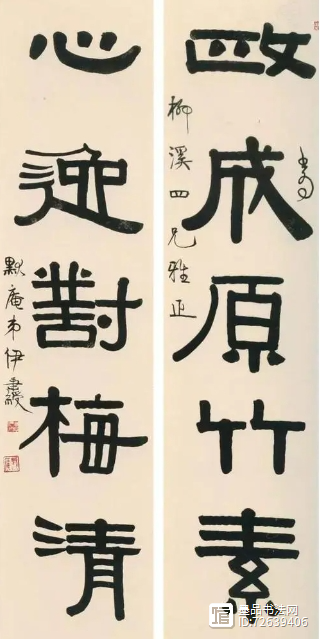 政成原竹素
柳溪四兄雅正
心逸對梅清
默庵弟伊秉綬
墨品书法网
ID:72639406